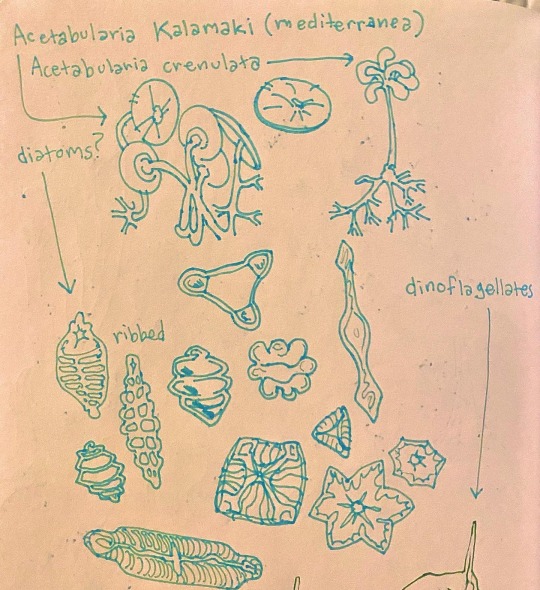 Acetabularia Kalamaki (mediterranea)
Acetabularia crenulata
diatoms?
dinoflagellates
ribbed